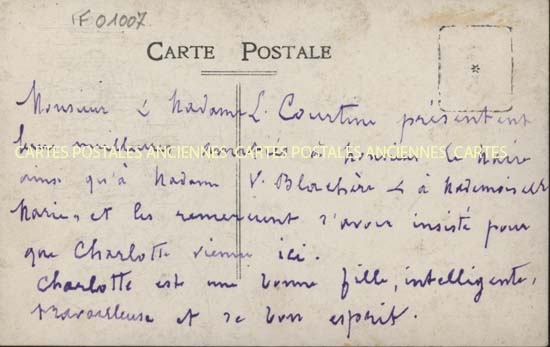 F 01007
CARTE POSTALE
Monsieur & Madame L. Courtine présentent
leurs meilleures amitiés à Monsieur le Maire
CARTES POSTALES ANCIENNES CARTES POSTALES ANCIENNES CARTES
ainsi qu'à Madame V. Blanchère & à Mademoiselle
Marie, et les remercient d'avoir insisté pour
que Charlotte vienne ici.
Charlotte est une bonne fille, intelligente,
travailleuse et de bon esprit.